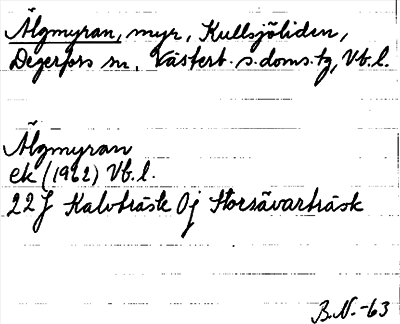 Älgmyran, myr, Kullsjöliden,
Degerfors sn, Västerb. s. doms. tg, Vb. l.
Älgmyran
ek (1962) Vb. l.
22J Kalvträsk Oj Storsävarträsk
B.N. -63